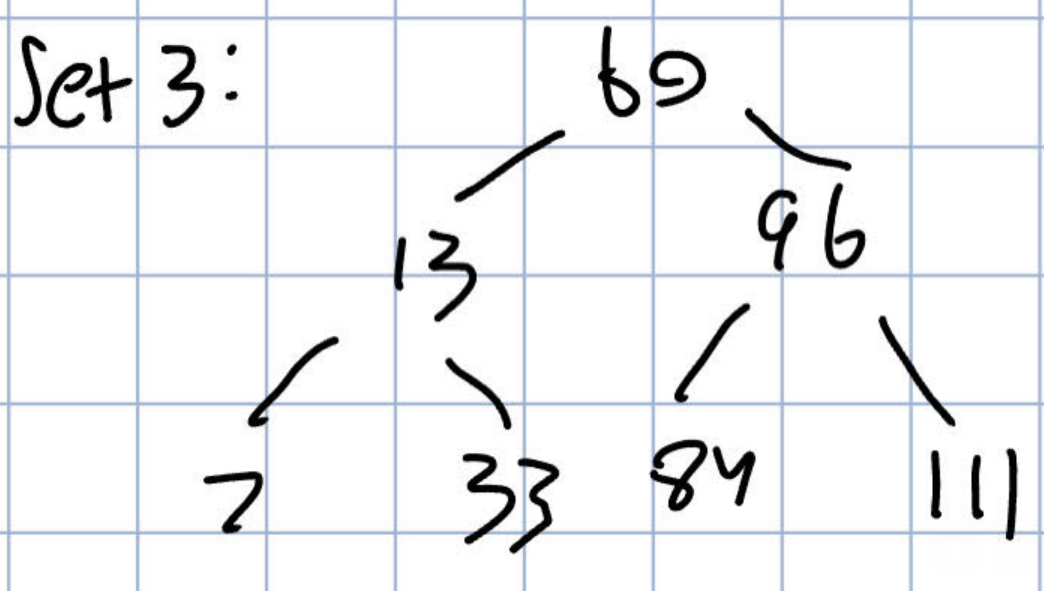 Set 3:
60
13 96
7 33 84 111